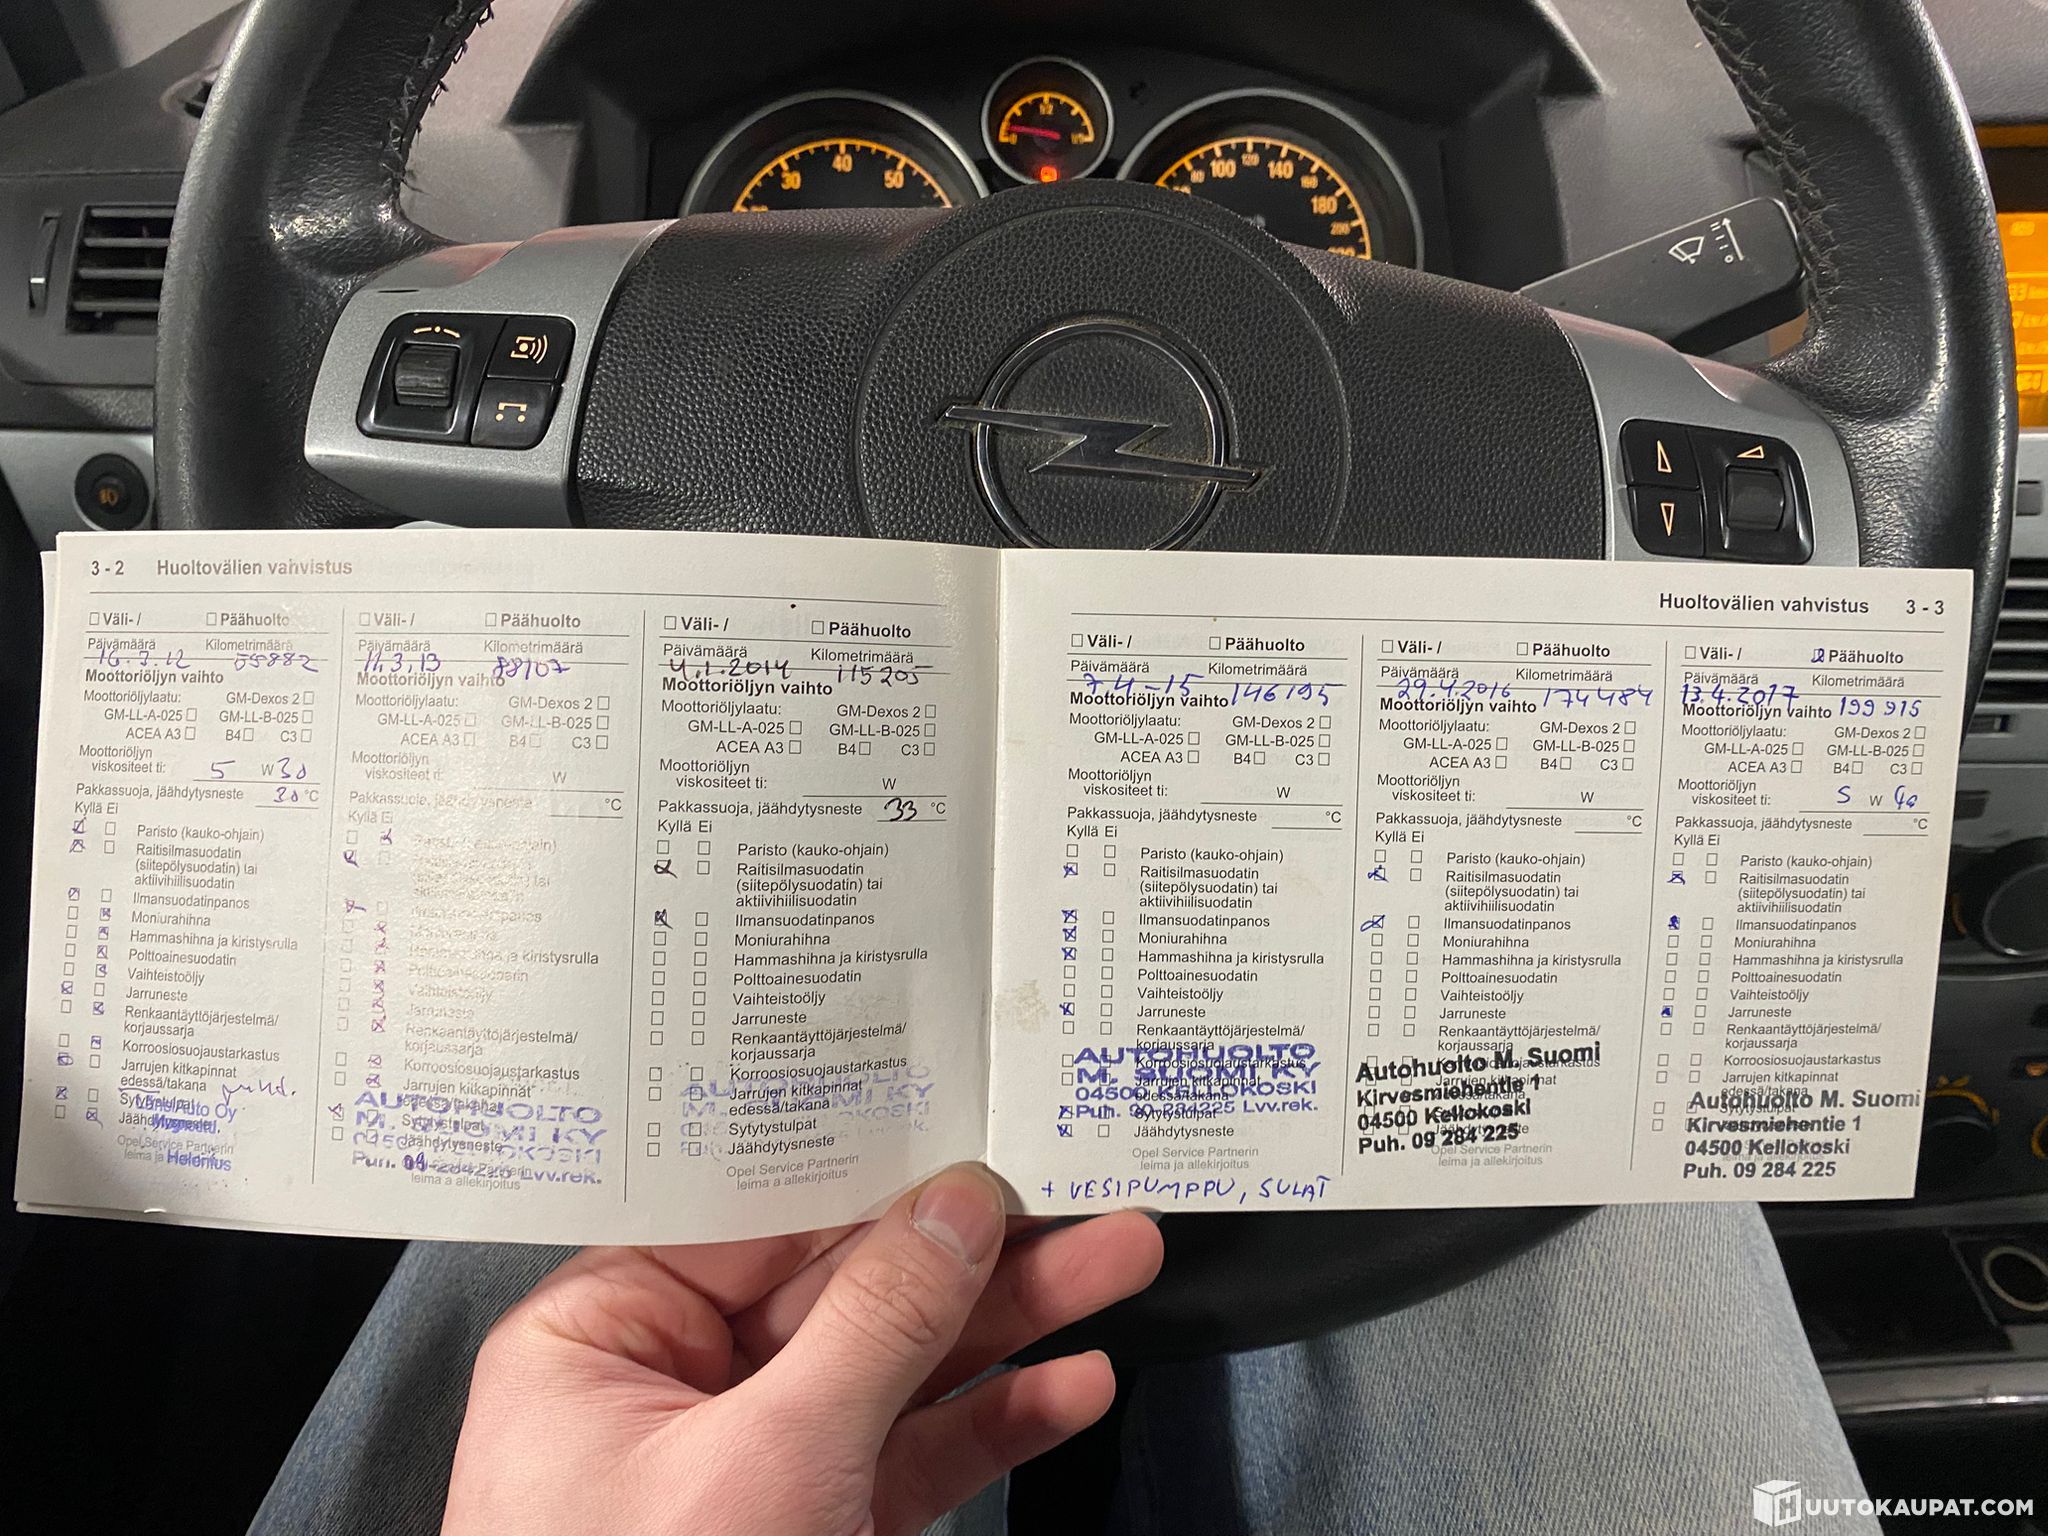 1/2
30 40 50
80 100 120 140 160 180 200
3 - 2 Huoltovälien vahvistus
☐ Väli- / ☐ Päähuolto
Päivämäärä Kilometrimäärä
16.3.12 55882
Moottoriöljyn vaihto
Moottoriöljylaatu: GM-Dexos 2 ☐
GM-LL-A-025 ☐ GM-LL-B-025 ☐
ACEA A3 ☐ B4 ☐ C3 ☐
Moottoriöljyn
viskositeet ti: 5 W 30
Pakkassuoja, jäähdytysneste 30 °C
Kyllä Ei
Paristo (kauko-ohjain)
Raitisilmasuodatin
(siitepölysuodatin) tai
aktiivihiilisuodatin
Ilmansuodatinpanos
Moniurahihna
Hammashihna ja kiristysrulla
Polttoainesuodatin
Vaihteistoöljy
Jarruneste
Renkaantäyttöjärjestelmä/
korjaussarja
Korroosiosuojaustarkastus
Jarrujen kitkapinnat
edessä/takana
Sytytystulpat
Jäähdytysneste
Länsi Auto Oy
Opel Service Partnerin
leima ja
Helenius
☐ Väli- / ☐ Päähuolto
Päivämäärä Kilometrimäärä
11.3.13 88107
Moottoriöljyn vaihto
Moottoriöljylaatu: GM-Dexos 2 ☐
GM-LL-A-025 ☐ GM-LL-B-025 ☐
ACEA A3 ☐ B4 ☐ C3 ☐
Moottoriöljyn
viskositeet ti: W
Pakkassuoja, jäähdytysneste °C
Kyllä Ei
Hammashihna ja kiristysrulla
Polttoainesuodatin
Vaihteistoöljy
Jarruneste
Renkaantäyttöjärjestelmä/
korjaussarja
Korroosiosuojaustarkastus
Jarrujen kitkapinnat
edessä/takana
Sytytystulpat
Jäähdytysneste
AUTOHUOLTO
M. SUOMI KY
04500 KELLOKOSKI
Puh. 09-284225 Lvv.rek.
Opel Service Partnerin
leima ja allekirjoitus
☐ Väli- / ☐ Päähuolto
Päivämäärä Kilometrimäärä
4.1.2014 115205
Moottoriöljyn vaihto
Moottoriöljylaatu: GM-Dexos 2 ☐
GM-LL-A-025 ☐ GM-LL-B-025 ☐
ACEA A3 ☐ B4 ☐ C3 ☐
Moottoriöljyn
viskositeet ti: W
Pakkassuoja, jäähdytysneste 33 °C
Kyllä Ei
Paristo (kauko-ohjain)
Raitisilmasuodatin
(siitepölysuodatin) tai
aktiivihiilisuodatin
Ilmansuodatinpanos
Moniurahihna
Hammashihna ja kiristysrulla
Polttoainesuodatin
Vaihteistoöljy
Jarruneste
Renkaantäyttöjärjestelmä/
korjaussarja
Korroosiosuojaustarkastus
Jarrujen kitkapinnat
edessä/takana
Sytytystulpat
Jäähdytysneste
Opel Service Partnerin
leima ja allekirjoitus
Huoltovälien vahvistus 3 - 3
☐ Väli- / ☐ Päähuolto
Päivämäärä Kilometrimäärä
7.4.-15 146195
Moottoriöljyn vaihto
Moottoriöljylaatu: GM-Dexos 2 ☐
GM-LL-A-025 ☐ GM-LL-B-025 ☐
ACEA A3 ☐ B4 ☐ C3 ☐
Moottoriöljyn
viskositeet ti: W
Pakkassuoja, jäähdytysneste °C
Kyllä Ei
Paristo (kauko-ohjain)
Raitisilmasuodatin
(siitepölysuodatin) tai
aktiivihiilisuodatin
Ilmansuodatinpanos
Moniurahihna
Hammashihna ja kiristysrulla
Polttoainesuodatin
Vaihteistoöljy
Jarruneste
Renkaantäyttöjärjestelmä/
korjaussarja
Korroosiosuojaustarkastus
Jarrujen kitkapinnat
edessä/takana
Sytytystulpat
Jäähdytysneste
AUTOHUOLTO
M. SUOMI KY
04500 KELLOKOSKI
Puh. 90-284225 Lvv.rek.
Opel Service Partnerin
leima ja allekirjoitus
+ VESIPUMPPU, SULAT
☐ Väli- / ☐ Päähuolto
Päivämäärä Kilometrimäärä
29.4.2016 174484
Moottoriöljyn vaihto
Moottoriöljylaatu: GM-Dexos 2 ☐
GM-LL-A-025 ☐ GM-LL-B-025 ☐
ACEA A3 ☐ B4 ☐ C3 ☐
Moottoriöljyn
viskositeet ti: W
Pakkassuoja, jäähdytysneste °C
Kyllä Ei
Paristo (kauko-ohjain)
Raitisilmasuodatin
(siitepölysuodatin) tai
aktiivihiilisuodatin
Ilmansuodatinpanos
Moniurahihna
Hammashihna ja kiristysrulla
Polttoainesuodatin
Vaihteistoöljy
Jarruneste
Renkaantäyttöjärjestelmä/
korjaussarja
Autohuolto M. Suomi
Kirvesmiehentie 1
04500 Kellokoski
Puh. 09 284 225
Opel Service Partnerin
leima ja allekirjoitus
☐ Väli- / ☒ Päähuolto
Päivämäärä Kilometrimäärä
13.4.2017 199915
Moottoriöljyn vaihto
Moottoriöljylaatu: GM-Dexos 2 ☐
GM-LL-A-025 ☐ GM-LL-B-025 ☐
ACEA A3 ☐ B4 ☐ C3 ☐
Moottoriöljyn
viskositeet ti: 5 W 40
Pakkassuoja, jäähdytysneste °C
Kyllä Ei
Paristo (kauko-ohjain)
Raitisilmasuodatin
(siitepölysuodatin) tai
aktiivihiilisuodatin
Ilmansuodatinpanos
Moniurahihna
Hammashihna ja kiristysrulla
Polttoainesuodatin
Vaihteistoöljy
Jarruneste
Renkaantäyttöjärjestelmä/
korjaussarja
Korroosiosuojaustarkastus
Jarrujen kitkapinnat
edessä/takana
Sytytystulpat
Autohuolto M. Suomi
Kirvesmiehentie 1
04500 Kellokoski
Puh. 09 284 225
HUUTOKAUPAT.COM